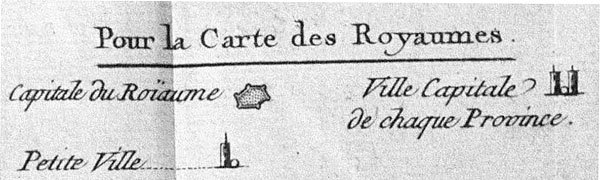 Pour la Carte des Royaumes.
Capitale du Roïaume
Ville Capitale
de chaque Province.
Petite Ville